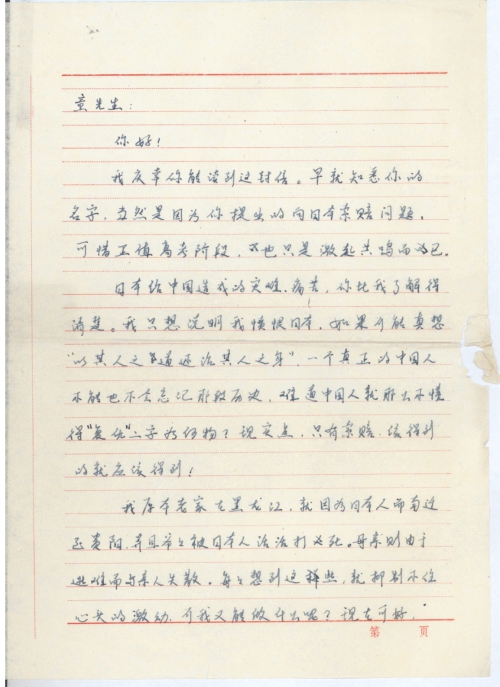 童先生:
你好!
我庆幸你能读到这封信。早就知悉你的
名字,当然是因为你提出的向日本索赔问题。
可惜正值高考阶段,也只是激起共鸣而已。
日本给中国造成的灾难、痛苦,你比我了解得
清楚。我只想说明我愤恨日本,如果可能真想
“以其人之道还治其人之身”,一个真正的中国人
不能也不会忘记那段历史,难道中国人就那么不懂
得“复仇”二字为何物?现实点,只有索赔,该得到
的就应该得到!
我原本老家在黑龙江,就因为日本人而南迁
至贵阳,并且爷爷被日本人活活打死。母亲则由于
逃难而与亲人失散。每每想到这些,就抑制不住
心头的激动,可我又能做什么呢?现在可好,
第 页